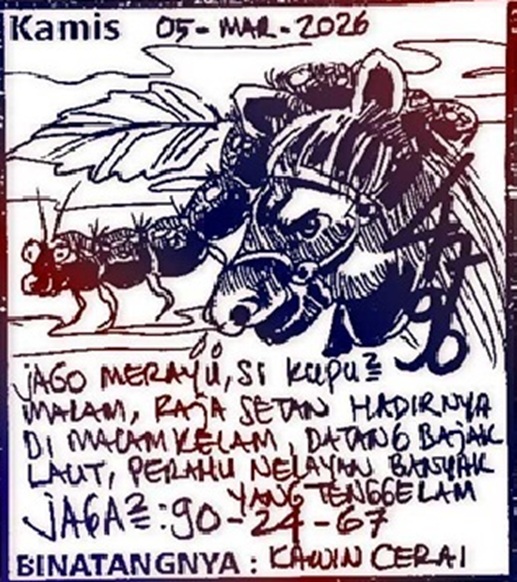 Kamis 05-MAR-2026
JAGO MERAYU, SI KUPU²
MALAM, RAJA SETAN HADIRNYA
DI MALAM KELAM, DATANG BAJAK
LAUT, PERAHU NELAYAN BANYAK
YANG TENGGELAM
JAGA² : 90-24-67
BINATANGNYA : KAWIN CERAI